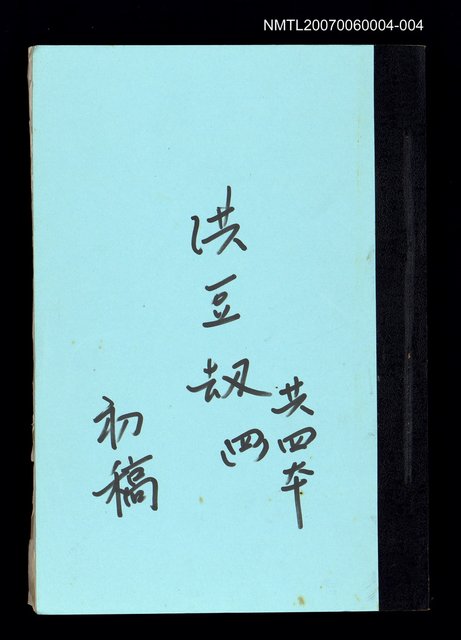 NMTL20070060004-004
共四本
洪豆刼
四
初稿